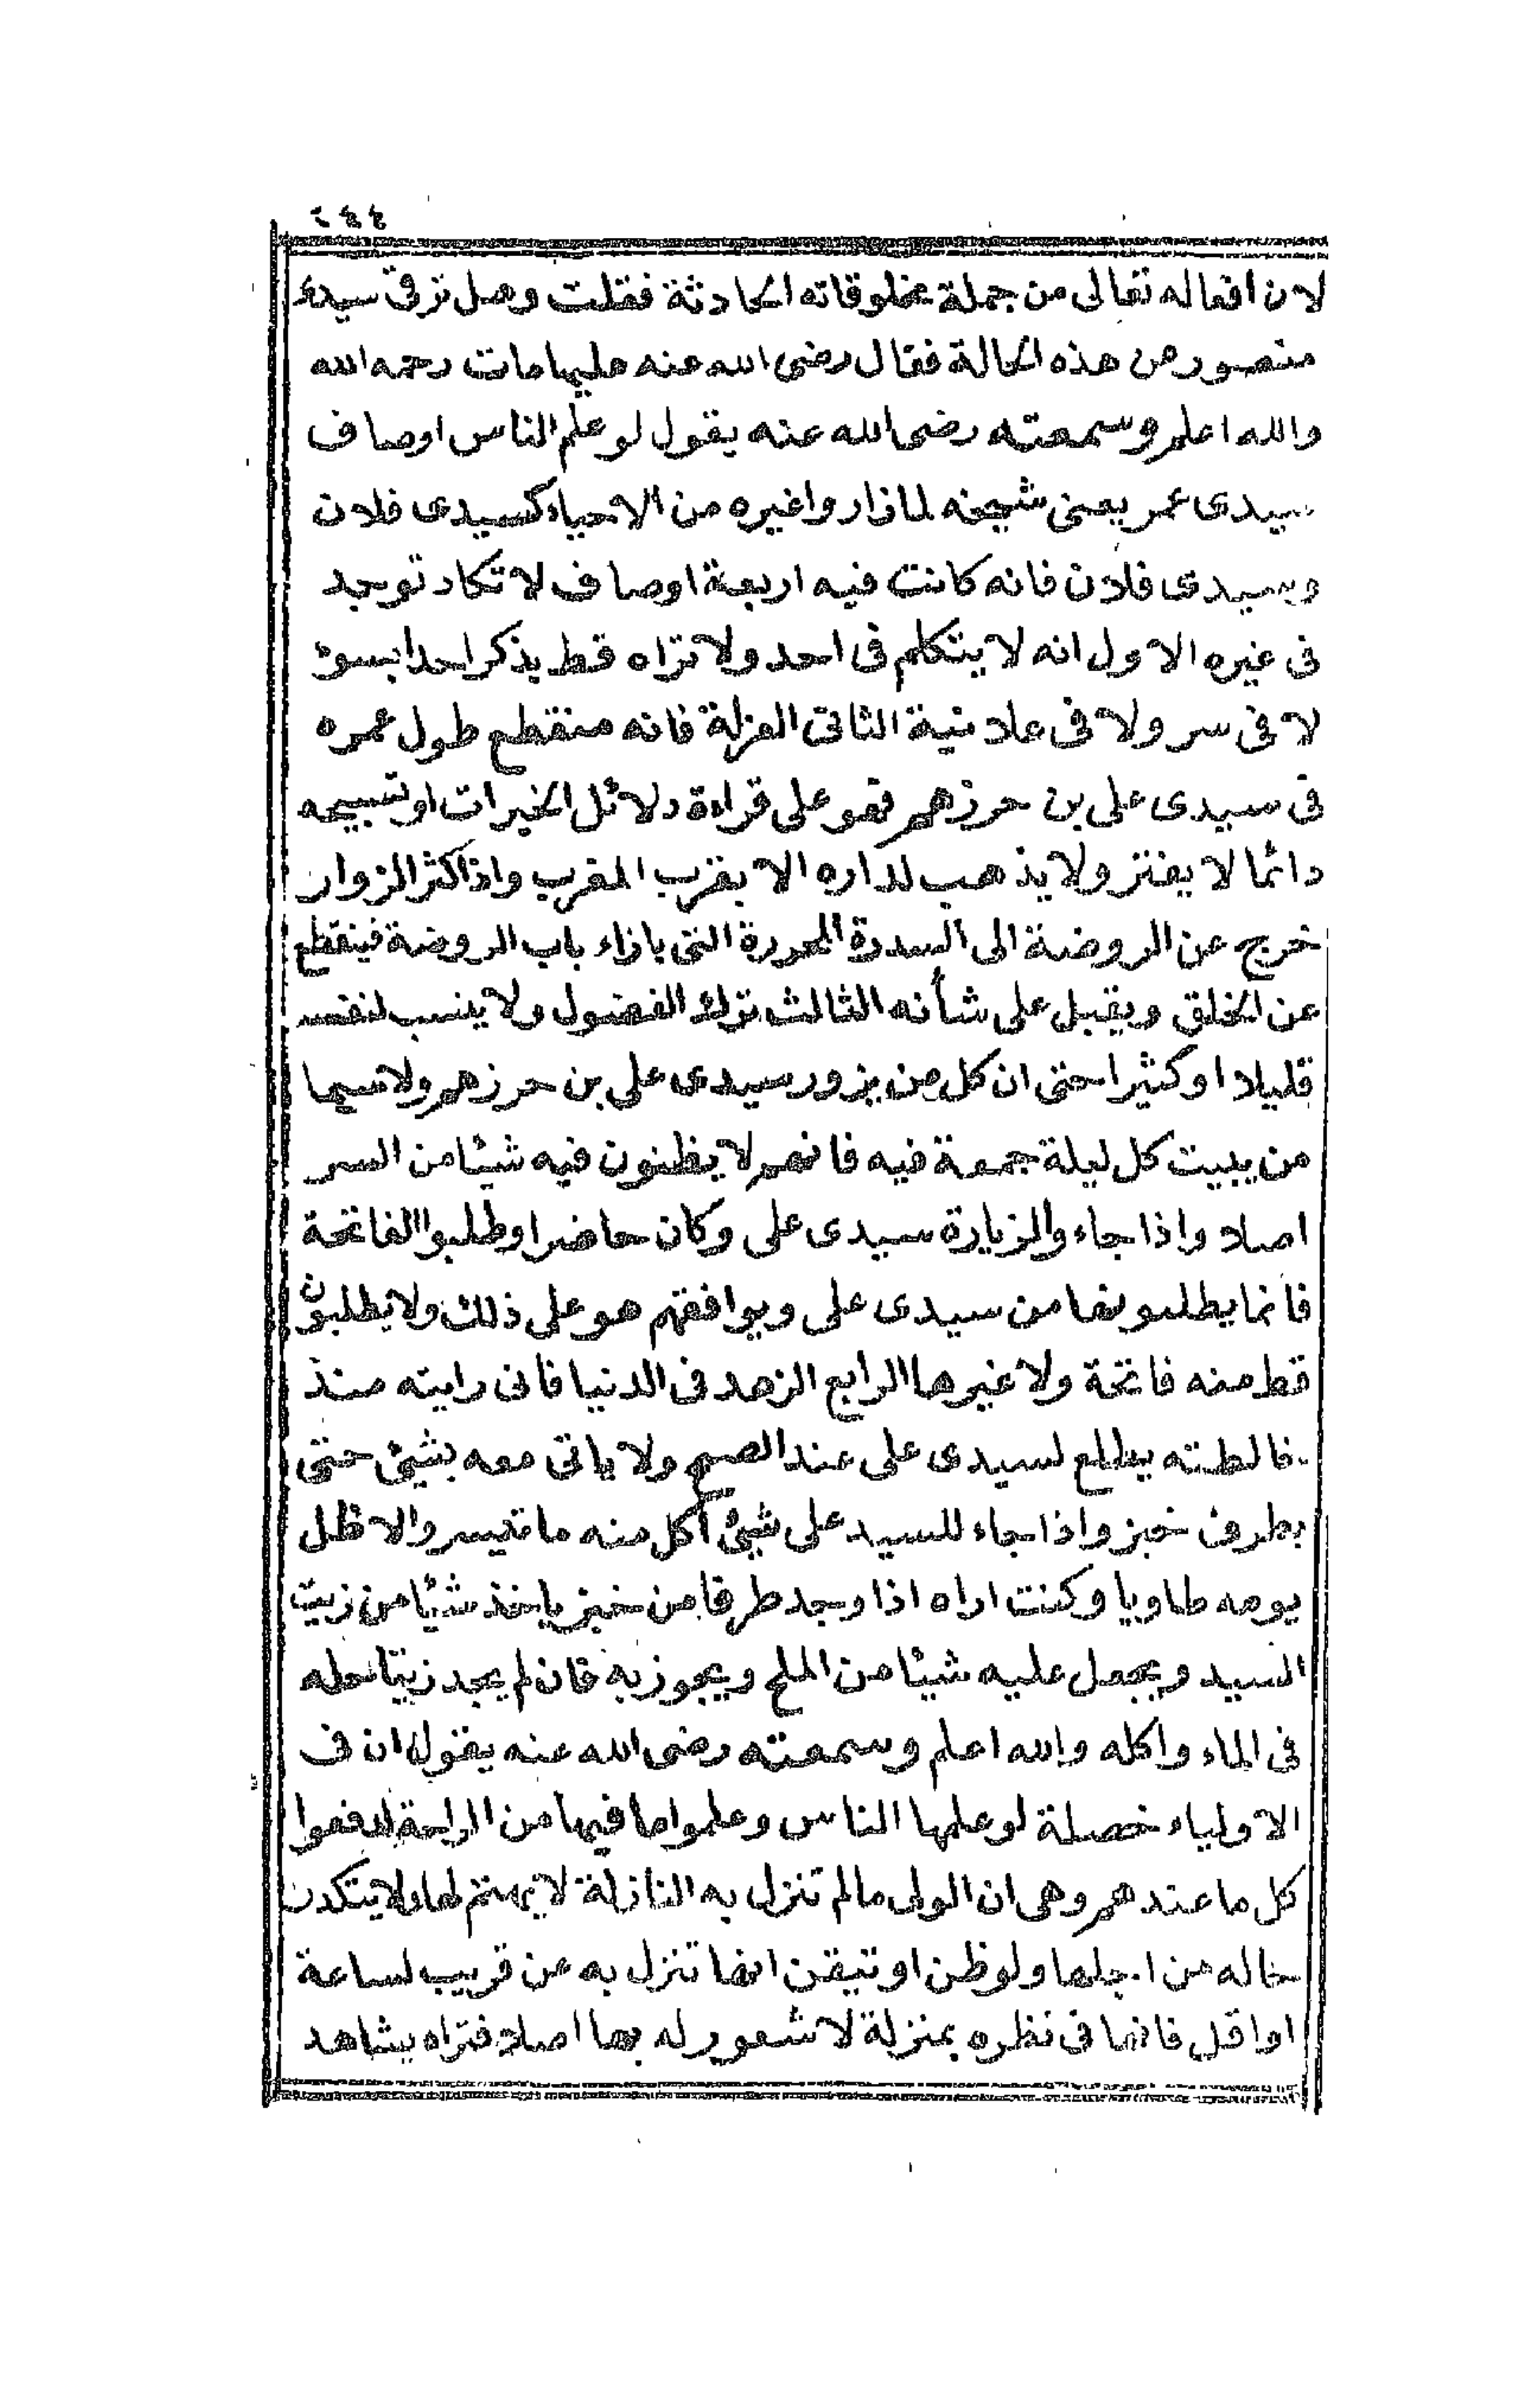 ٢٤٤
لان افعاله تعالى من جملة مخلوقاته الحادثة فقلت وهل ترقى سيدى
منصور عن هذه الحالة فقال رضى الله عنه عليها مات رحمه الله
والله اعلم وسمعته رضى الله عنه يقول لو علم الناس اوصاف
سيدى عمر يعنى شيخه لما زاروا غيره من الاحياء كسيدى فلان
وسيدى فلان فانه كانت فيه اربعة اوصاف لا تكاد توجد
فى غيره الاول انه لا يتكلم فى احد ولا تراه قط يذكر احدا بسوء
لا فى سر ولا فى علانية الثانى العزلة فانه منقطع طول عمره
فى سيدى على بن حرزهم فهو على قراءة دلائل الخيرات او تسبيحه
دائما لا يفتر ولا يذهب لداره الا بقرب المغرب واذا كثر الزوار
خرج عن الروضة الى السدرة المحررة التى بازاء باب الروضة فينقطع
عن الخلق ويقبل على شأنه الثالث ترك الفضول ولا ينسب لنفسه
قليلا او كثيرا حتى ان كل من يزور سيدى على بن حرزهم ولا سيما
من يبيت كل ليلة جمعة فيه فانهم لا يظنون فيه شيئا من السر
اصلا واذا جاءوا لزيارة سيدى على وكان حاضرا وطلبوا الفاتحة
فانما يطلبونها من سيدى على ويوافقهم هو على ذلك ولا يطلبون
قط منه فاتحة ولا غيرها الرابع الزهد فى الدنيا فانى رايته منذ
خالطته يطلع لسيدى على عند الصبح ولا ياتى معه بشيئ حتى
بطرف خبز واذا جاء للسيد على شيئ أكل منه ما تيسر والا ظل
يومه طاويا وكنت اراه اذا وجد طرفا من خبز ياخذ شيئا من زيت
السيد ويجعل عليه شيئا من الملح ويجوز به فان لم يجد زيتا
فى الماء واكله والله اعلم وسمعته رضى الله عنه يقول ان فى
الاولياء خصلة لو علمها الناس وعلموا ما فيها من الراحة لدفعوا
كل ما عندهم وهى ان الولى ما لم تنزل به النازلة لا يهتم لها ولا يتكدر
حاله من اجلها ولو ظن او تيقن انها تنزل به عن قريب لساعة
او اقل فانها فى نظره بمنزلة لا شعور له بها اصلا فتراه يشاهد